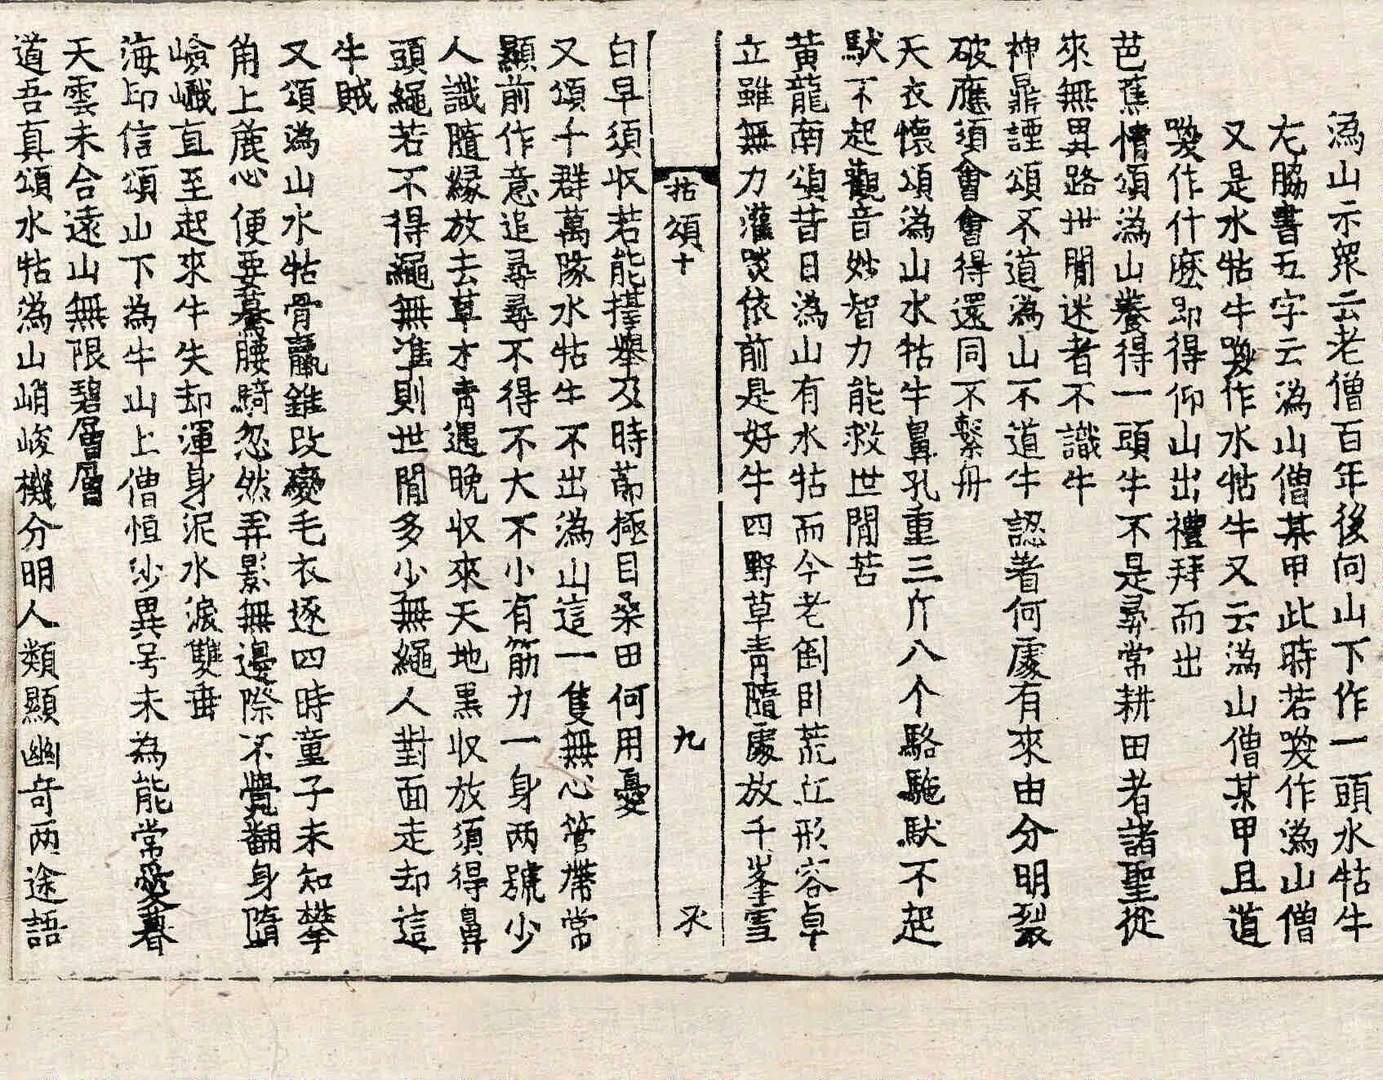 溈山示衆云老僧百年後向山下作一頭水牯牛
左脇書五字云溈山僧某甲此時若喚作溈山僧
又是水牯牛喚作水牯牛又云溈山僧某甲且道
喚作什麼即得仰山出禮拜而出
芭蕉慒頌溈山養得一頭牛不是尋常耕田者諸聖從
來無異路世間迷者不識牛
神鼎諲頌不道溈山不道牛認著何處有來由分明裂
破應須會會得還同不繫舟
天衣懷頌溈山水牯牛鼻孔重三斤八个駱駞馱不起
馱不起觀音妙智力能救世間苦
黃龍南頌昔日溈山有水牯而今老倒臥荒丘形容卓
立雖無力灌啖依前是好牛四野草青隨處放千峯雪
拈頌十 九 丞
白早須收若能擡舉及時莭極目桑田何用憂
又頌千群萬隊水牯牛不出溈山這一隻無心管帶常
顯前作意追尋尋不得不大不小有筋力一身两號少
人識隨緣放去草才青遇晚收來天地黑收放須得鼻
頭繩若不得繩無準則世間多少無繩人對面走却這
牛賊
又頌溈山水牯骨羸錐改變毛衣逐四時童子未知攀
角上麁心便要驀腰騎忽然弄影無邊際不覺翻身墮
嶮巇直至起來牛失却渾身泥水淚雙垂
海印信頌山下為牛山上僧恒沙異号未為能常愛暮
天雲未合遠山無限碧層層
道吾真頌水牯溈山峭峻機分明人類顯幽奇两途語